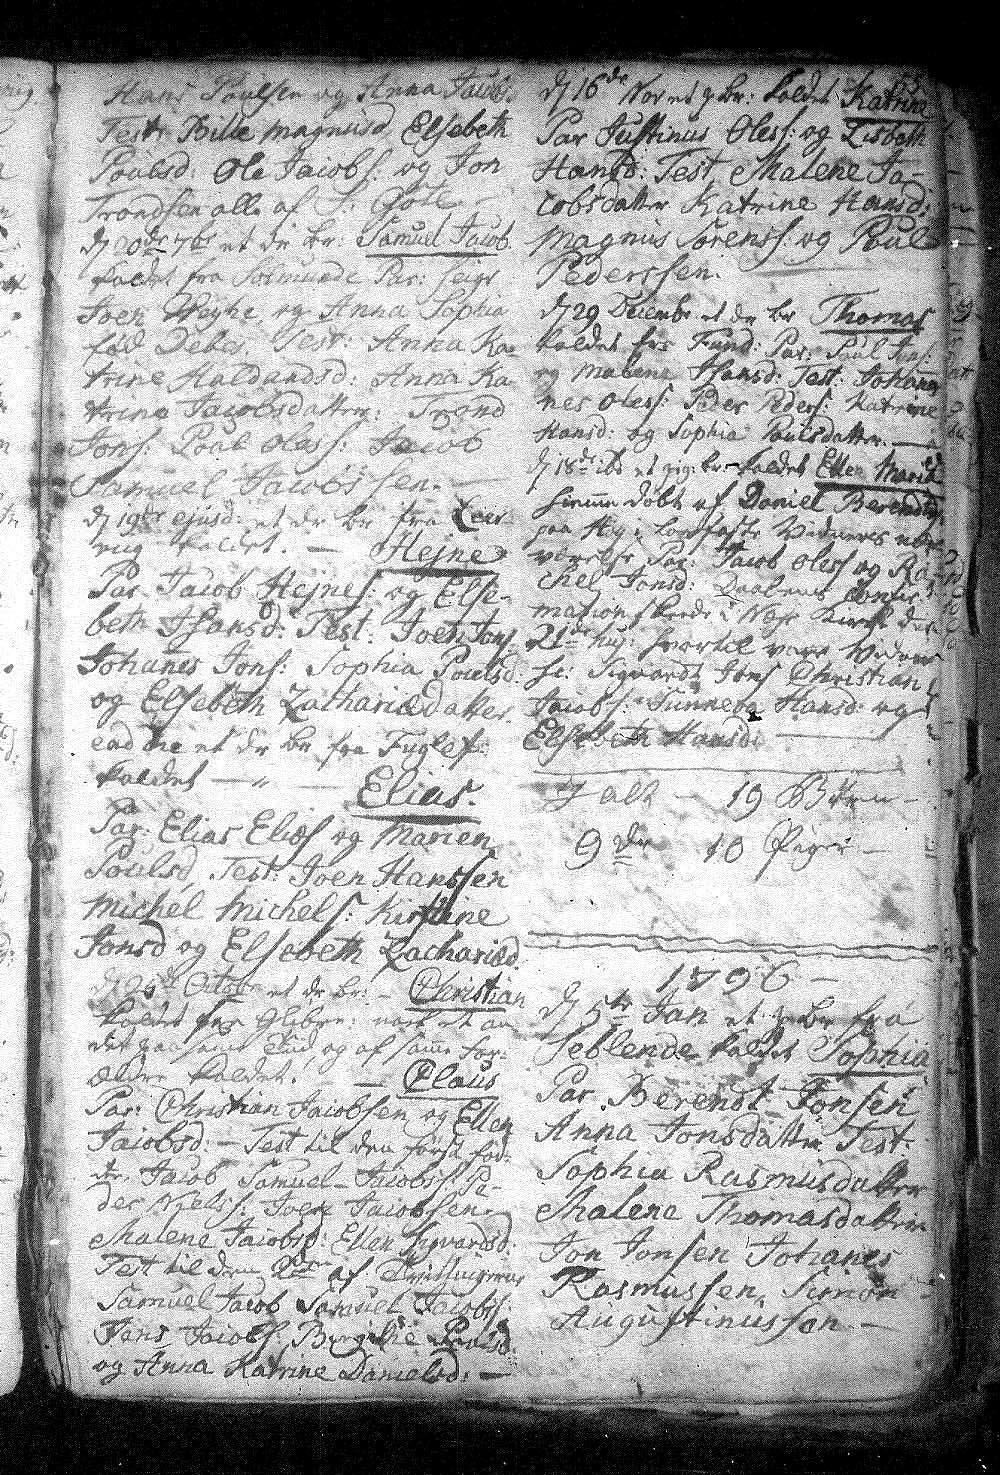 Hans Poulsen og Anna Jacobs.
Test. Bille Magnusd. Elsebeth
Poulsd: Ole Jacobs: og Jon
Trondsen alle af S: Gøte
d 20de 7br et de br: Samuel Jacob
kaldet fra Solmunde Par: Seigr
Joen Weyhe og Anna Sophia
fød Debes. Test: Anna Ka-
trine Haldandsd: Anna Ka
trine Jacobsdatter: Trond
Jons: Poul Oles: Jacob
Samuel Jacobssen.
d 19de ejusd: et de br fra Leer-
vig kaldet. — Hejne
Par Jacob Hejnes: og Else-
beth Hansd: Test: Joen Jons.
Johanes Jons: Sophia Poulsd:
og Elsebeth Zachariædatter.
eod die et de br fra Fuglef:
kaldet — Elias.
Par: Elias Eliæs og Marien
Poulsd. Test: Joen Hanssen
Michel Michels: Kirstine
Jonsd og Elsebeth Zachariæd.
Octobr et de br: — Christian
kaldet fra
og af samme For-
ældre kaldet. — Claus
Par: Christian Jacobsen og Ellen
Jacobsd: — Test til den først fød-
te. Jacob Samuel Jacobss: Pe-
der Niels: Joen Jacobsen
Malene Jacobsd: Ellen Sigvardsd:
Test til den 2den af Tvillingerne
Samuel Jacob Samuel Jacobs:
Jens Jacobs: Birgithe Poulsd.
og Anna Katrine Danielsd: —
55
d 16de Nov et g br: kaldet Katrine
Par Justinus Oless: og Lisbeth
Hansd: Test. Malene Ja-
cobsdatter Katrine Hansd:
Magnus Sørenss og Poul
Pederssen.
d 29 Decembr et de br Thomas
kaldet fra Fund: Par: Poul Jons:
og Malene Hansd: Test: Johan-
nes Oless: Peder Peders: Katrine
Hansd: og Sophia Poulsdatter.
d 18de ibd et pig: br: kaldet Ellen Marie
hjemme døbt af Daniel Berendsen
paa Høj i Vidners nær-
værelse Par: Jacob Oless og Ra-
chel Jonsd: Daabens Confir-
mation skeede i Næs Kirke den
21de huj: hvortil vare Vidner
Sigvardt Jons Christian
Jacobs: Sunneva Hansd: og
Elsebeth Hansd:
J alt — 19 Børn —
9 De 10 Piger —
1796 —
d 5te Jan et g br fra
Seblende kaldet Sophia
Par. Berendt Jonsen
Anna Jonsdatter Test:
Sophia Rasmusdatter
Malene Thomasdatter
Jon Jonsen Johanes
Rasmussen, Simon
Augustinussen —